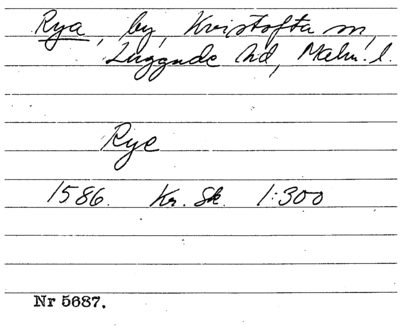 Rya, by, Kvistofta sn,
Luggude hd, Malm. l.
Rye
1586. Kr. Sk. 1:300
Nr 5687.